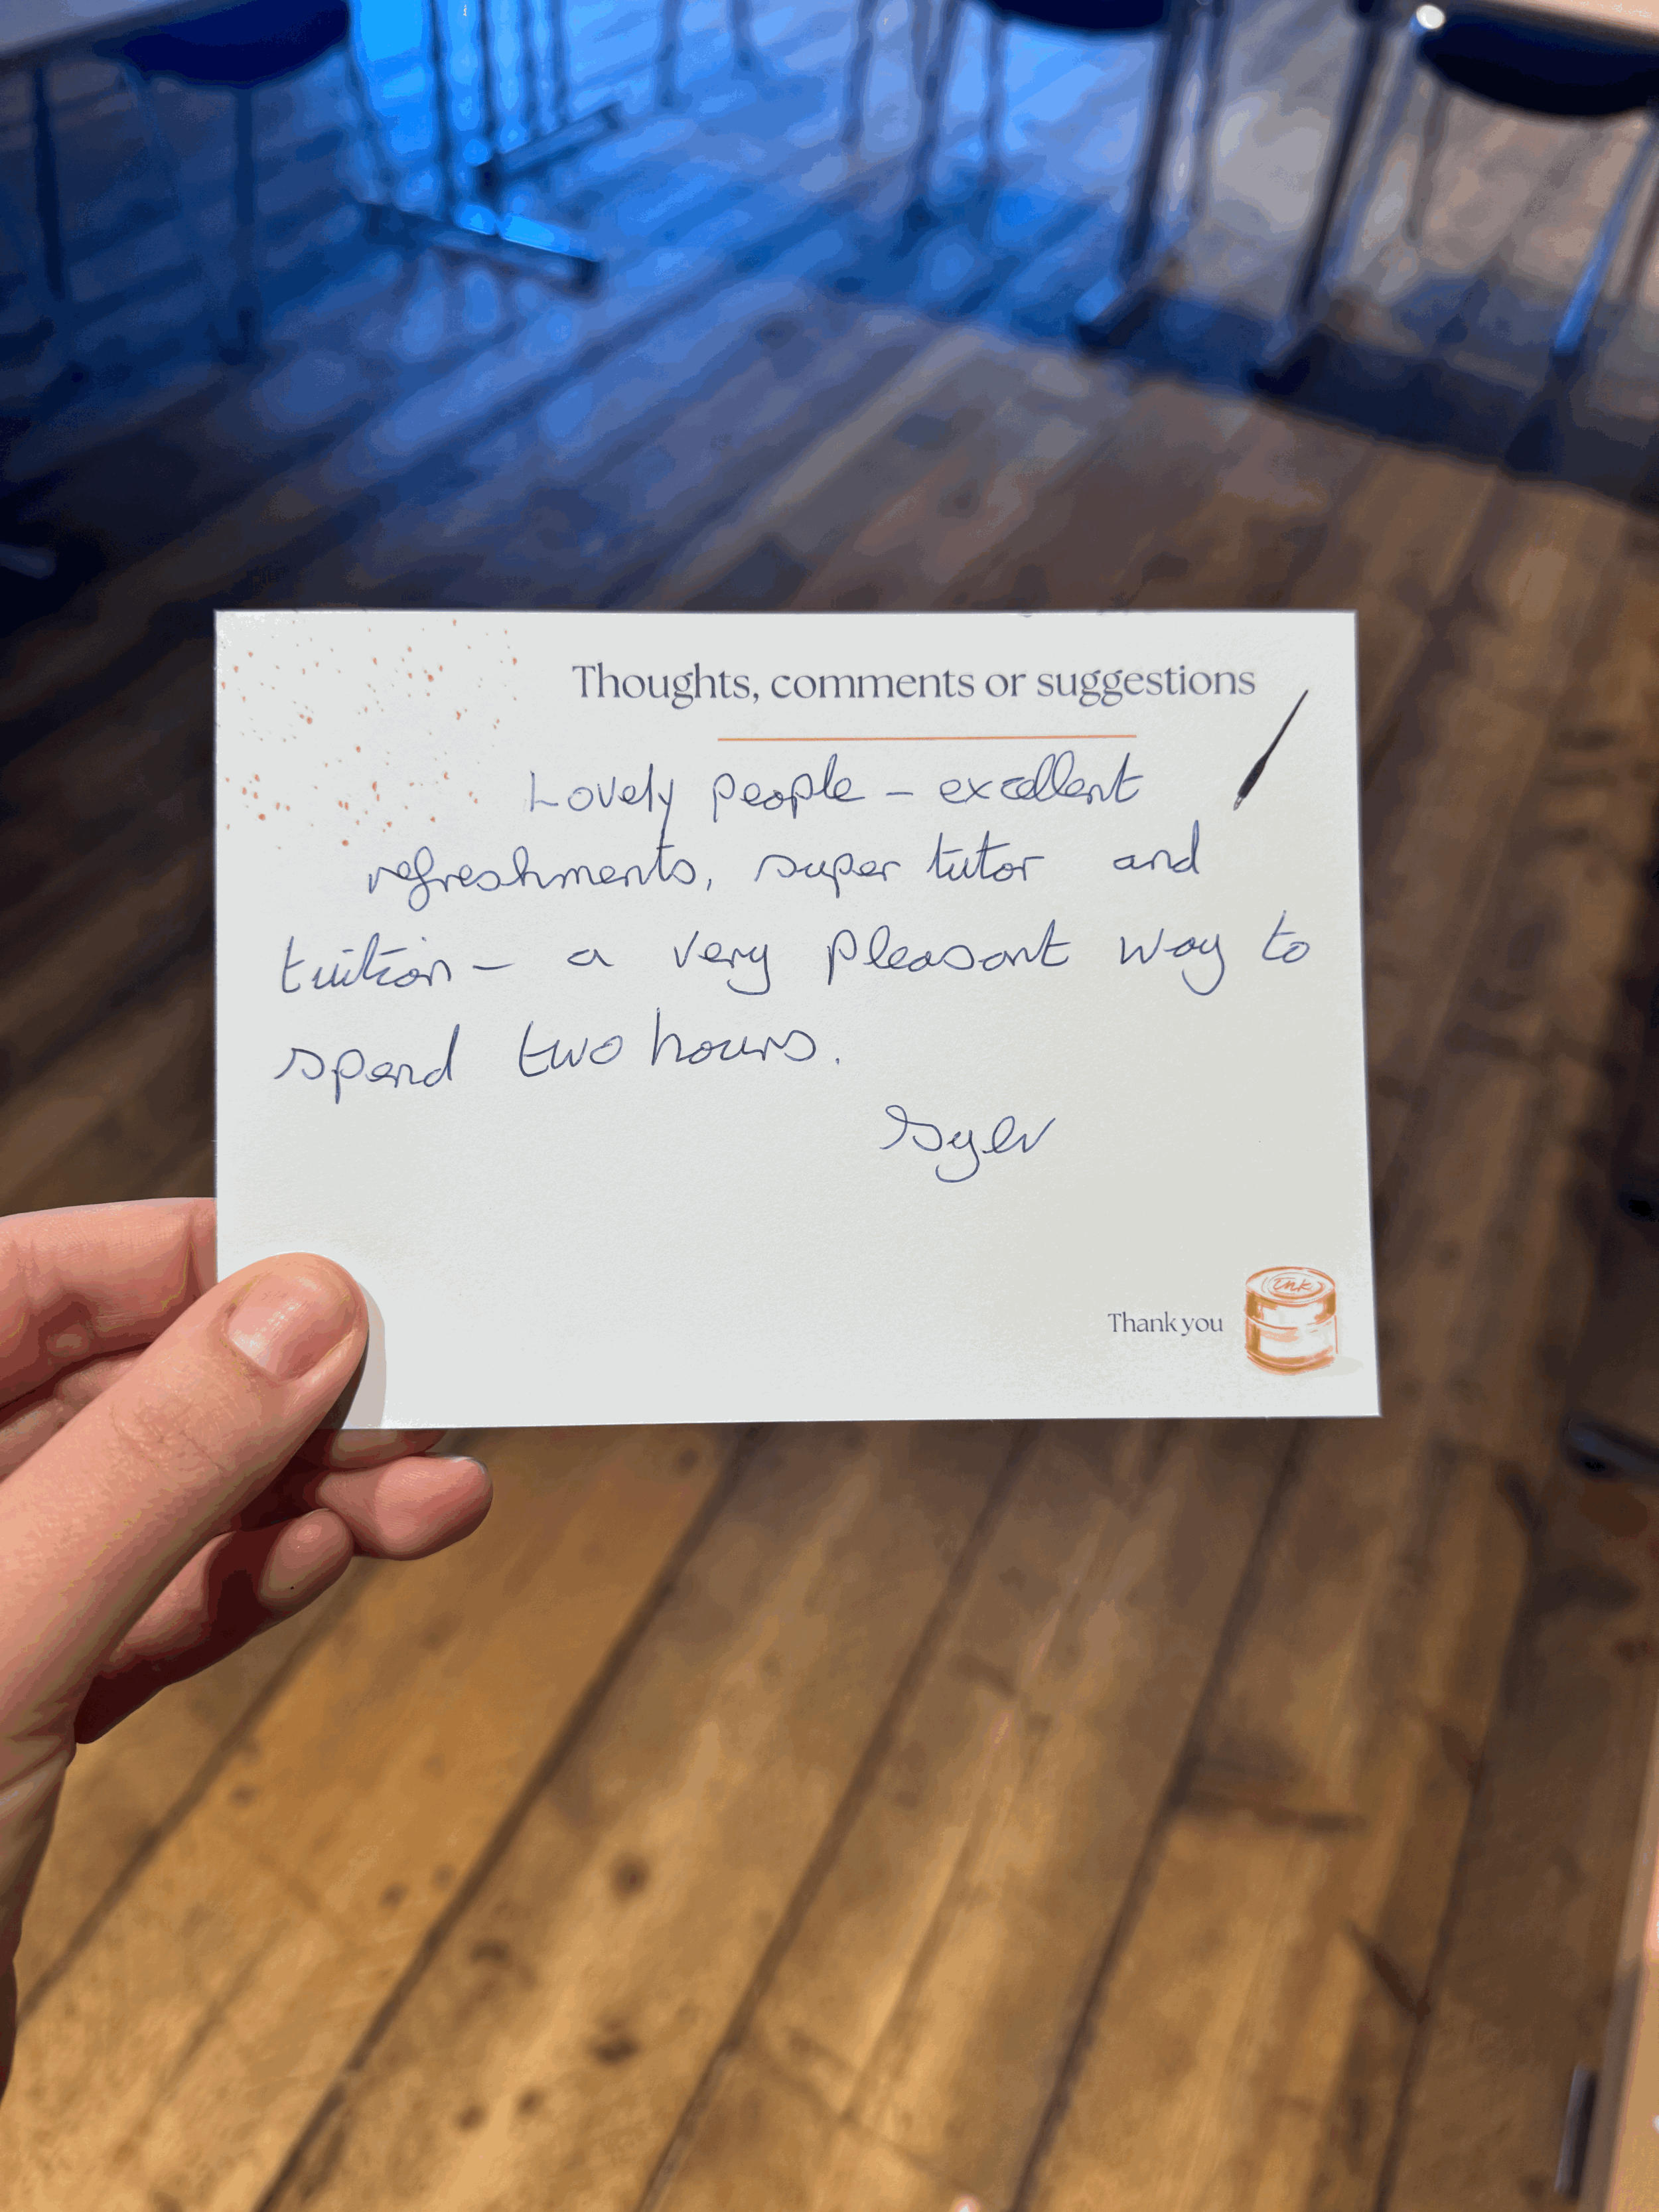 Thoughts, comments or suggestions
Lovely people - excellent
refreshments, super tutor and
tuition - a very pleasant way to
spend two hours.
Syer
Thank you
Ink